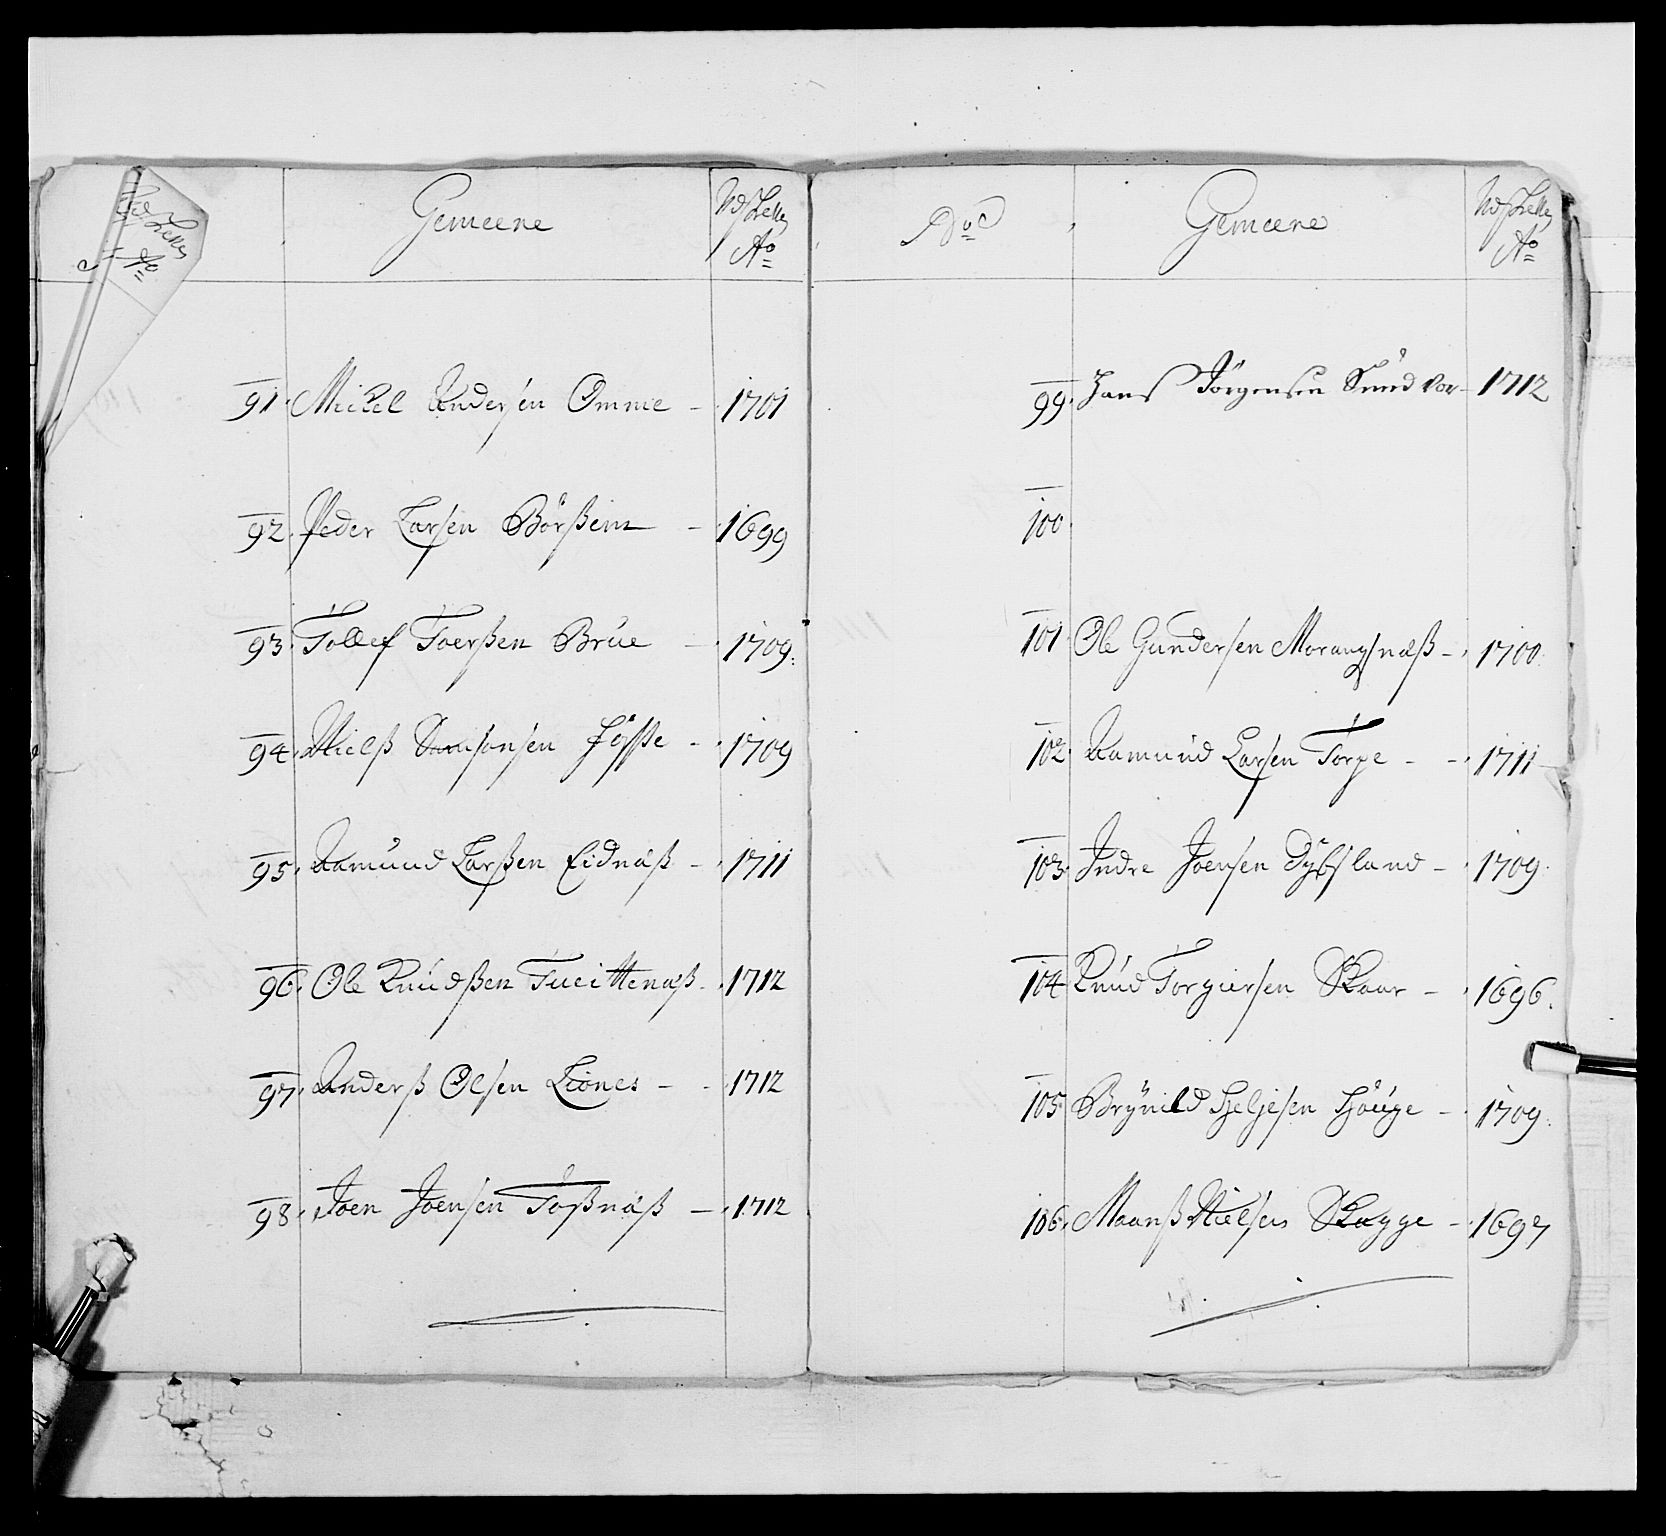 Gemeene
Udsætte
Ao
91. Mickel Andersen Omme - 1701
92. Peder Larsen Börßeim - 1699
93. Tollef Toerßen Brúe - 1709
94. Nielß Samsonsen Fösse - 1709
95. Aamúnd Larßen Eidnäß - 1711
96. Ole Knúdßen Tueittenäß - 1712
97. Anderß Olsen Liones - 1712
98. Joen Joensen Toßnäß - 1712
No
Gemeene
Udsætte
Ao
99. Hans Jörgensen Sundvor - 1712
100.
101. Ole Gundersen Morangsnæß - 1700
102. Aamund Larsen Torpe - 1711
103. Indre Joensen Dybsland - 1709
104. Knúd Torgiersen Skaar - 1696.
105. Brynild Heljesen Hoúge - 1709
106. Maanß Nielsen Skogge - 1697